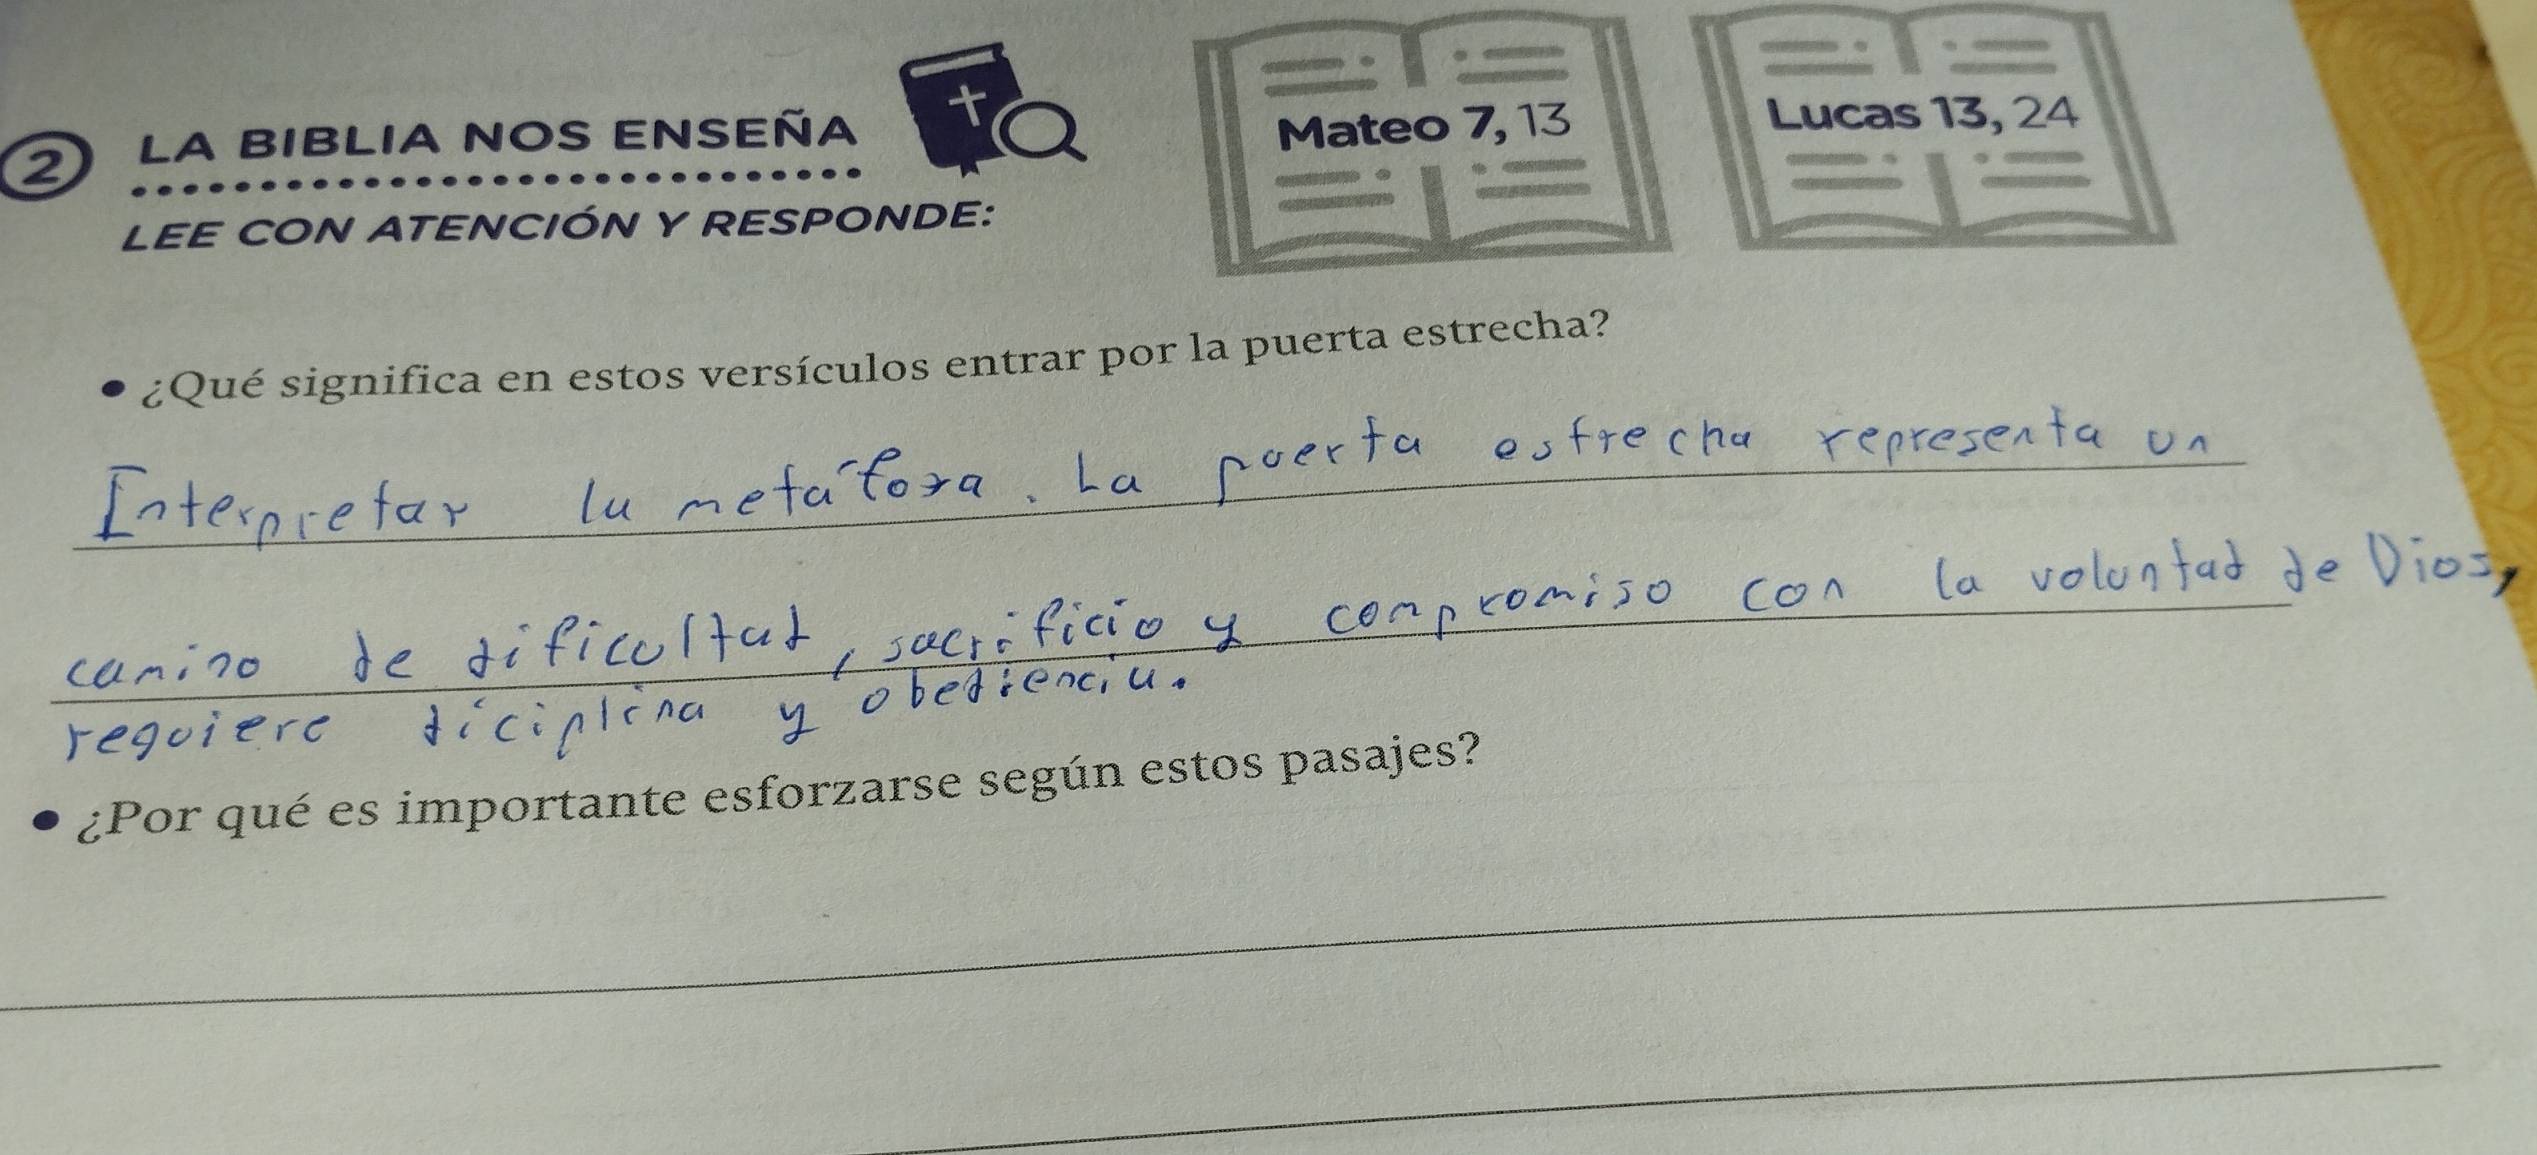 2 LA BIBLIA NOS ENSEÑA
LEE CON ATENCIÓN Y RESPONDE:
Mateo 7, 13
Lucas 13, 24
• ¿Qué significa en estos versículos entrar por la puerta estrecha?
Interpretar la metáfora. La puerta estrecha representa un
camino de dificultad, sacrificio y compromiso con la voluntad de Dios,
requiere diciplina y obediencia.
• ¿Por qué es importante esforzarse según estos pasajes?